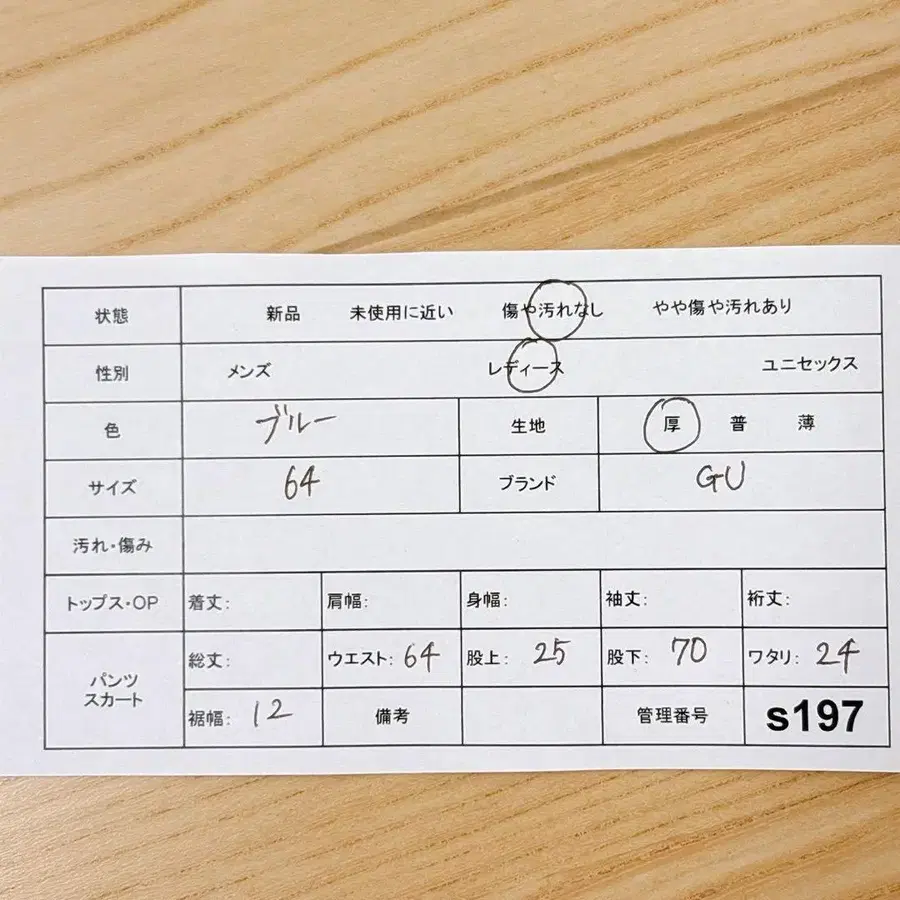 状態 新品 未使用に近い 傷や汚れなし やや傷や汚れあり
性別 メンズ レディース ユニセックス
色 ブルー 生地 厚 普 薄
サイズ 64 ブランド GU
汚れ・傷み
トップス・OP 着丈: 肩幅: 身幅: 袖丈: 裄丈:
パンツ スカート 総丈: ウエスト: 64 股上: 25 股下: 70 ワタリ: 24
裾幅: 12 備考 管理番号 s197